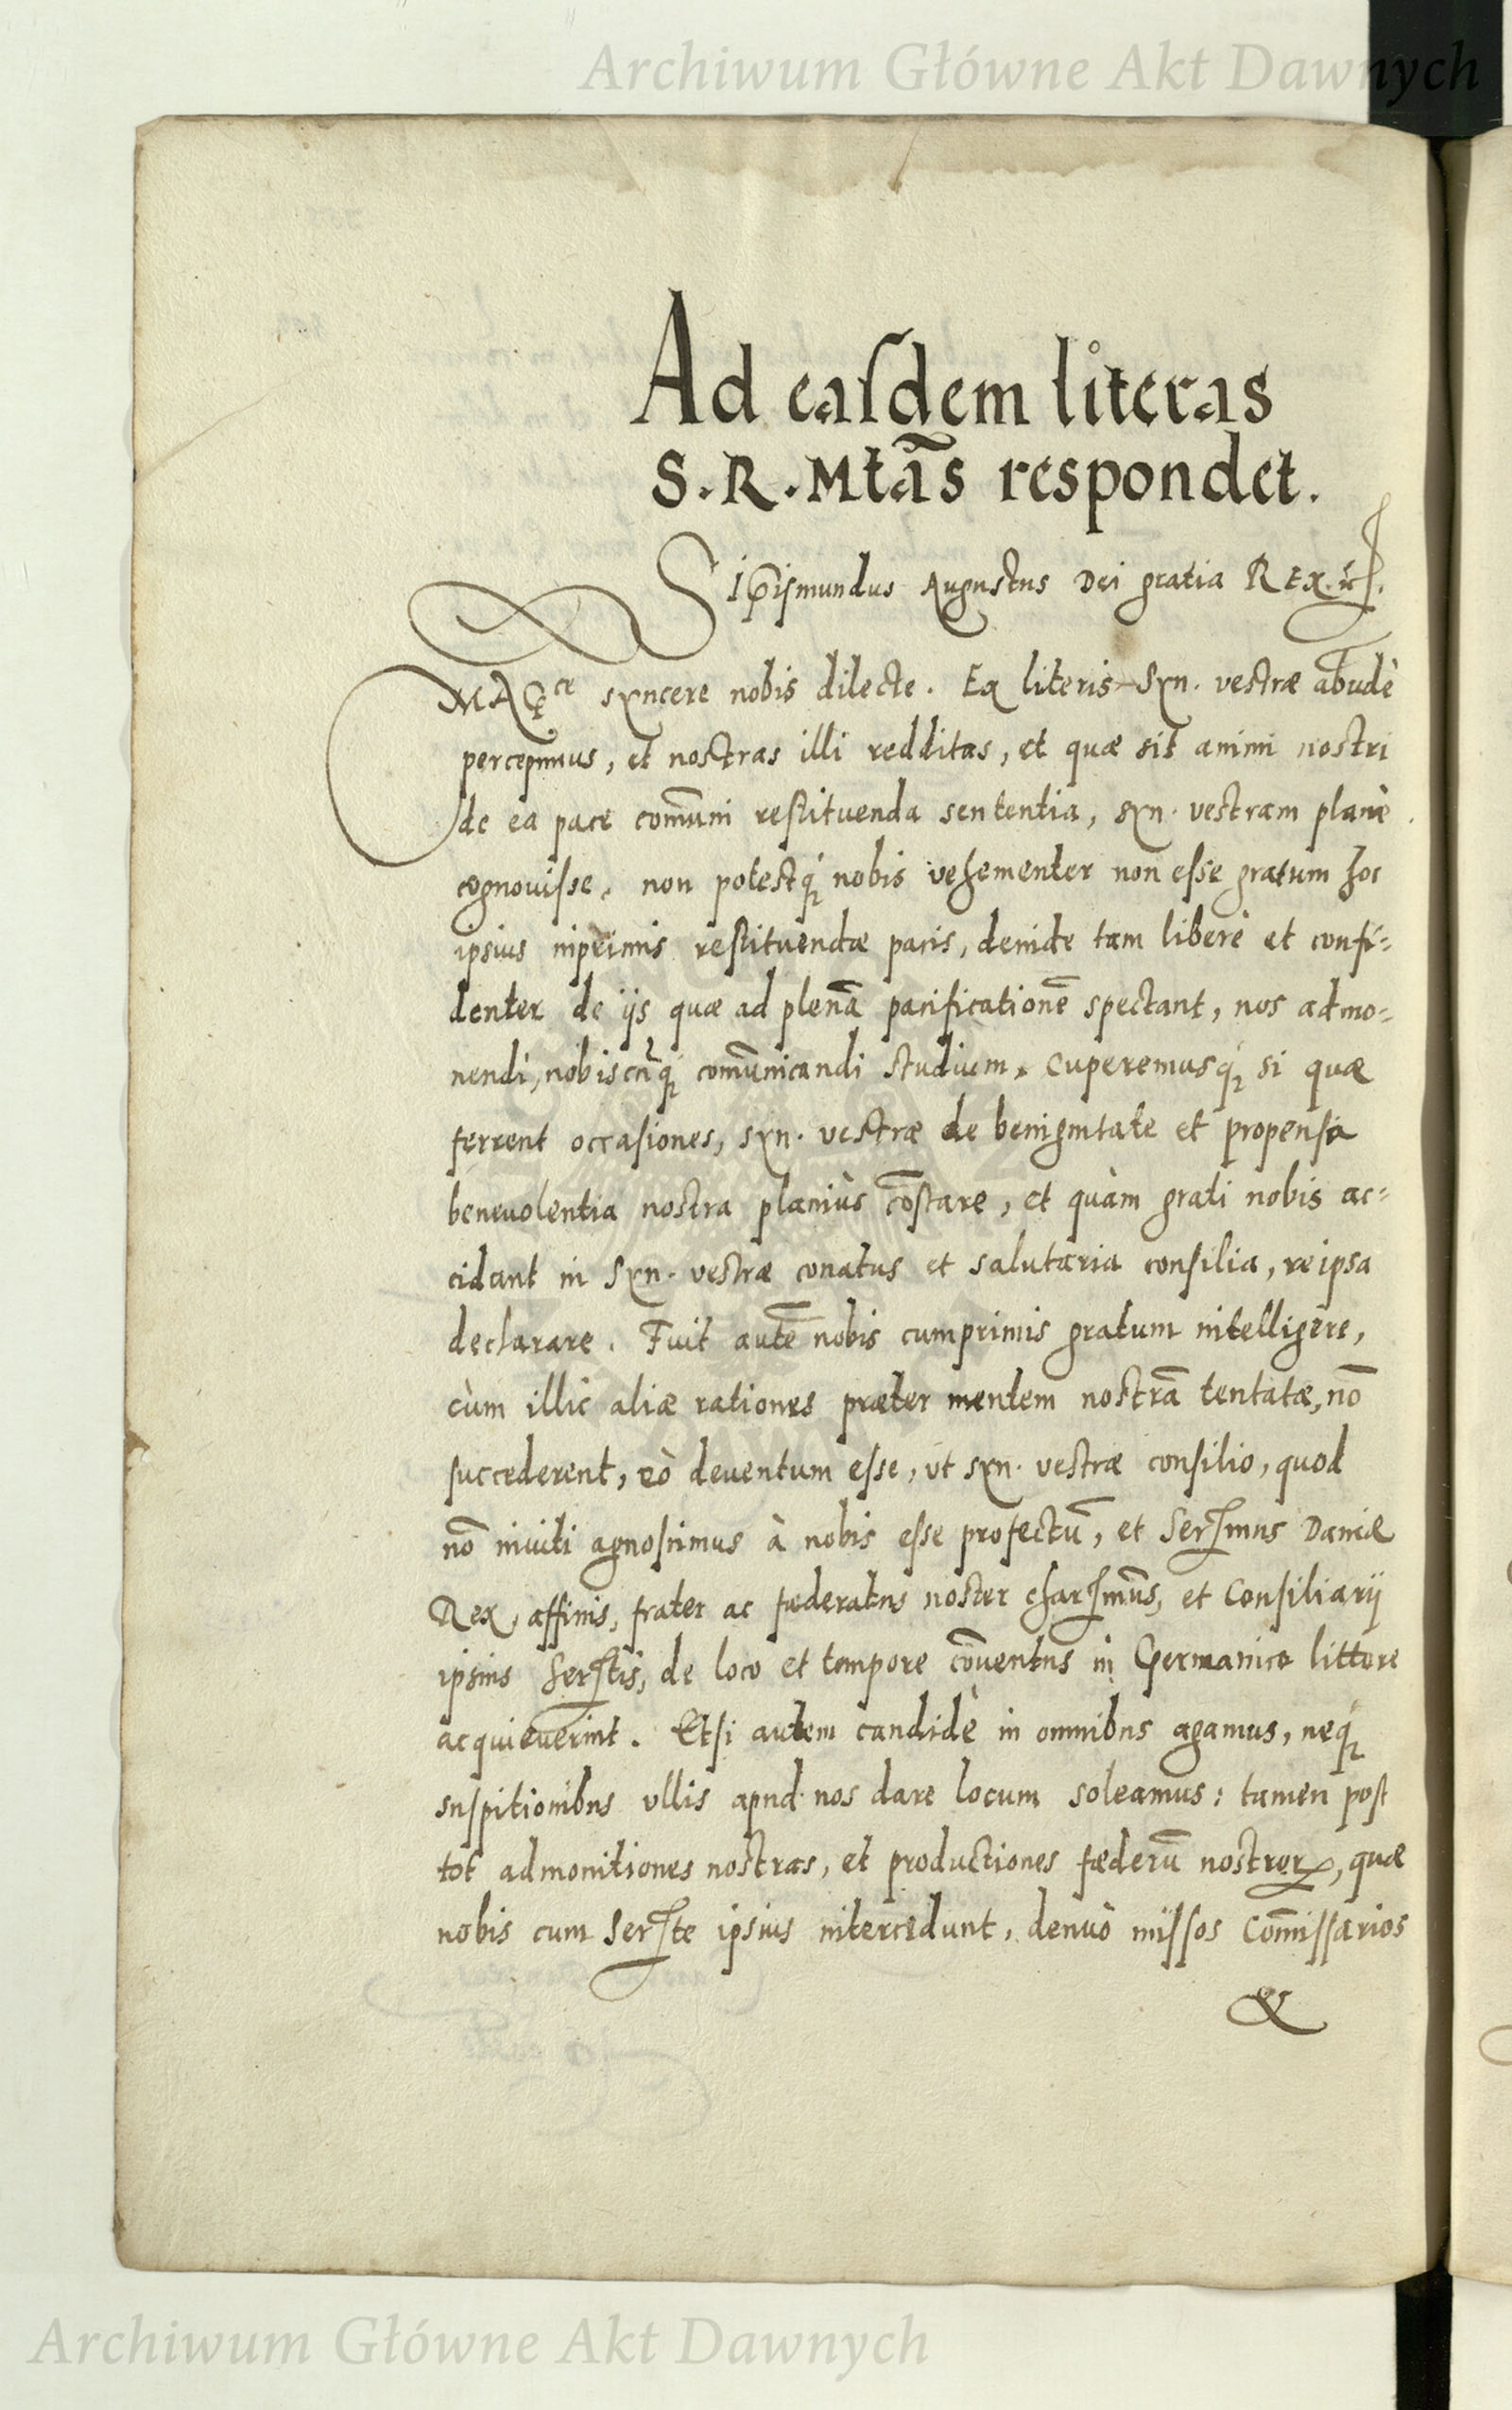 Archiwum Główne Akt Dawnych
Ad easdem literas
S. R. Mtãs respondet.
Sigismundus Augustus Dei gratia Rex. etc.
MAGce syncere nobis dilecte. Ex literis Syn. vestræ abũdè
percepimus, et nostras illi redditas, et quæ sit animi nostri
de ea pace com̃uni restituenda sententia, syn. vestram planè
cognouisse. non potestq́; nobis vehementer non esse gratum hoc
ipsius inprimis restituendæ pacis, deinde tam liberè et confi-
denter de ijs quæ ad plenã pacificationẽ spectant, nos admo-
nendi, nobiscũq́; com̃unicandi studium. Cuperemusq́; si quæ
ferrent occasiones, syn. vestræ de benignitate et propensa
beneuolentia nostra planiùs cõstare, et quàm grati nobis ac-
cidant in Syn. vestræ conatus et salutaria consilia, reipsa
declarare. Fuit autẽ nobis cumprimis gratum intelligere,
cùm illic aliæ rationes præter mentem nostrã tentatæ, nõ
succederent, eò deuentum esse, ut syn. vestræ consilio, quod
nõ inuiti agnoscimus à nobis esse profectũ, et Serſmus Daniæ
Rex, affinis, frater ac fæderatus noster charſmus, et Consiliarij
ipsius Serſtis, de loco et tempore cõuentus in Germanico littore
acquieuerint. Etsi autem candidè in omnibus agamus, neq́;
suspitionibus vllis apud nos dare locum soleamus: tamen post
tot admonitiones nostras, et productiones fæderũ nostrorꝝ, quæ
nobis cum Serſte ipsius intercedunt, denuò missos Com̃issarios
&
Archiwum Główne Akt Dawnych